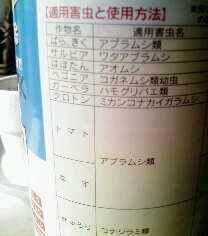 【適用害虫と使用方法】
作物名 適用害虫名
ばら,きく アブラムシ類
サルビア ワタアブラムシ
はぼたん アオムシ
ベゴニア コガネムシ類幼虫
ガーベラ ハモグリバエ類
クロトン ミカンコナカイガラムシ
トマト
アブラムシ類
なす
きゅうり コナジラミ類